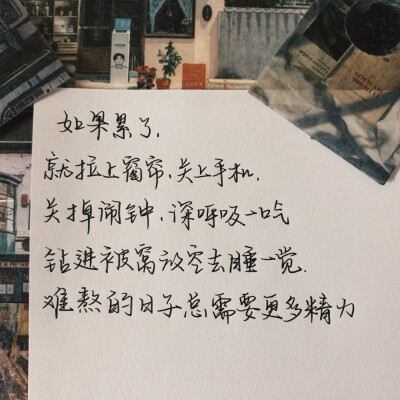 如果累了,
就拉上窗帘,关上手机,
关掉闹钟,深呼吸一口气
钻进被窝放空去睡一觉.
难熬的日子总需要更多精力